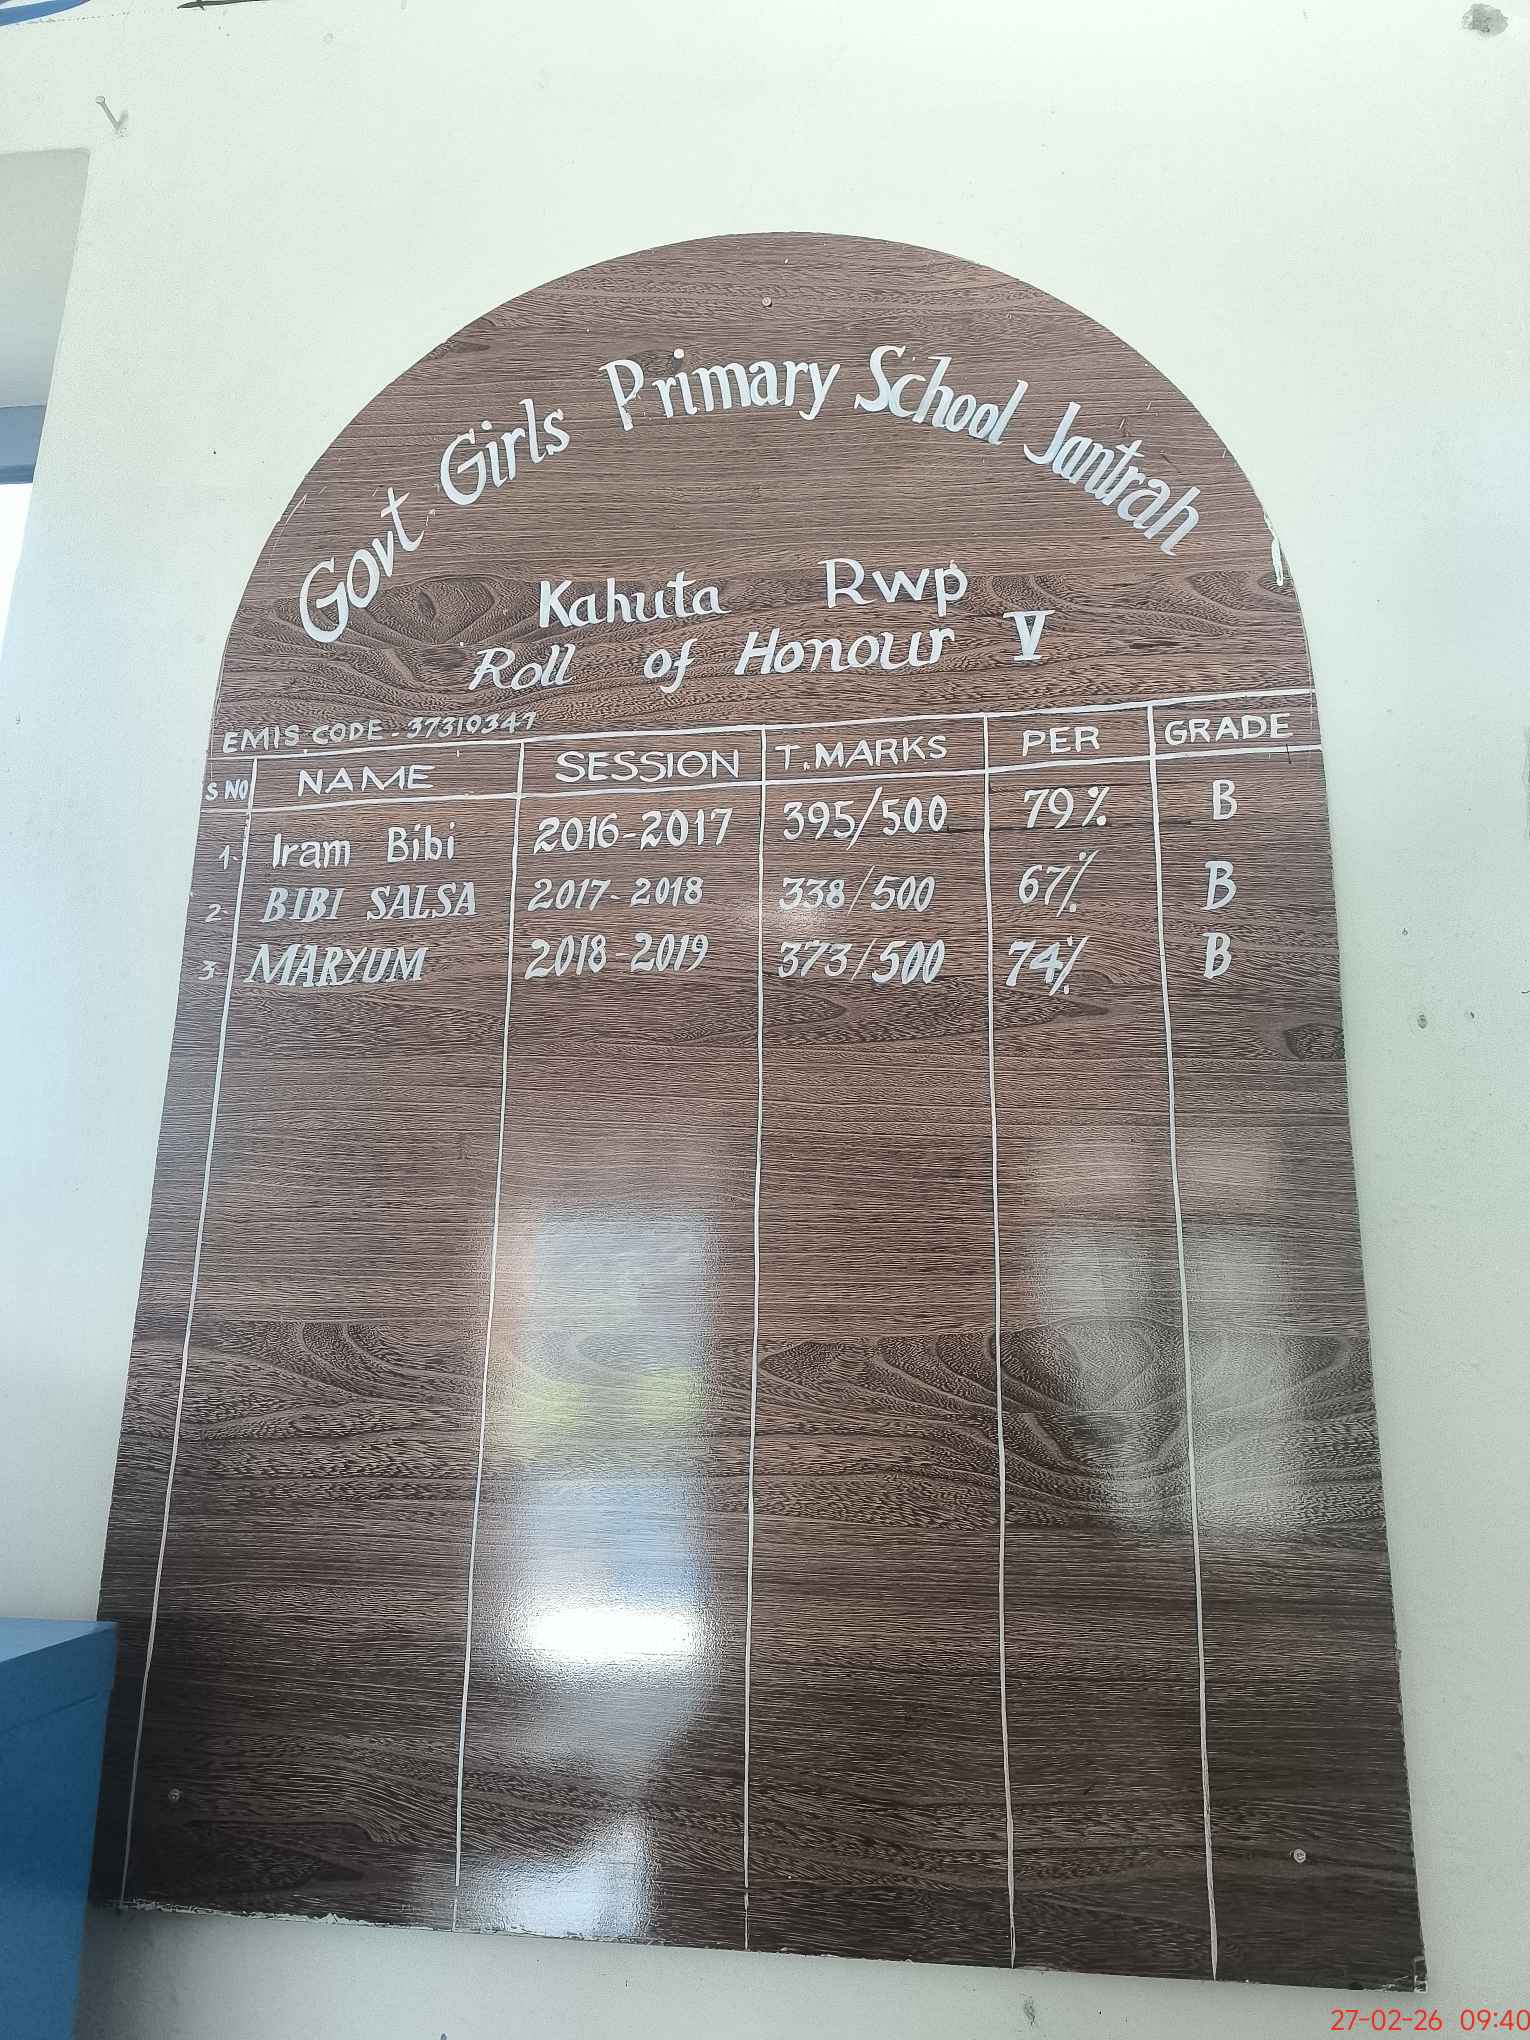 Govt Girls Primary School Jantrah
Kahuta Rwp
Roll of Honour V
EMIS CODE - 37310347
S NO NAME SESSION T. MARKS PER GRADE
1- Iram Bibi 2016-2017 395/500 79% B
2- BIBI SALSA 2017-2018 338/500 67% B
3- MARYUM 2018-2019 373/500 74% B
27-02-26 09:40